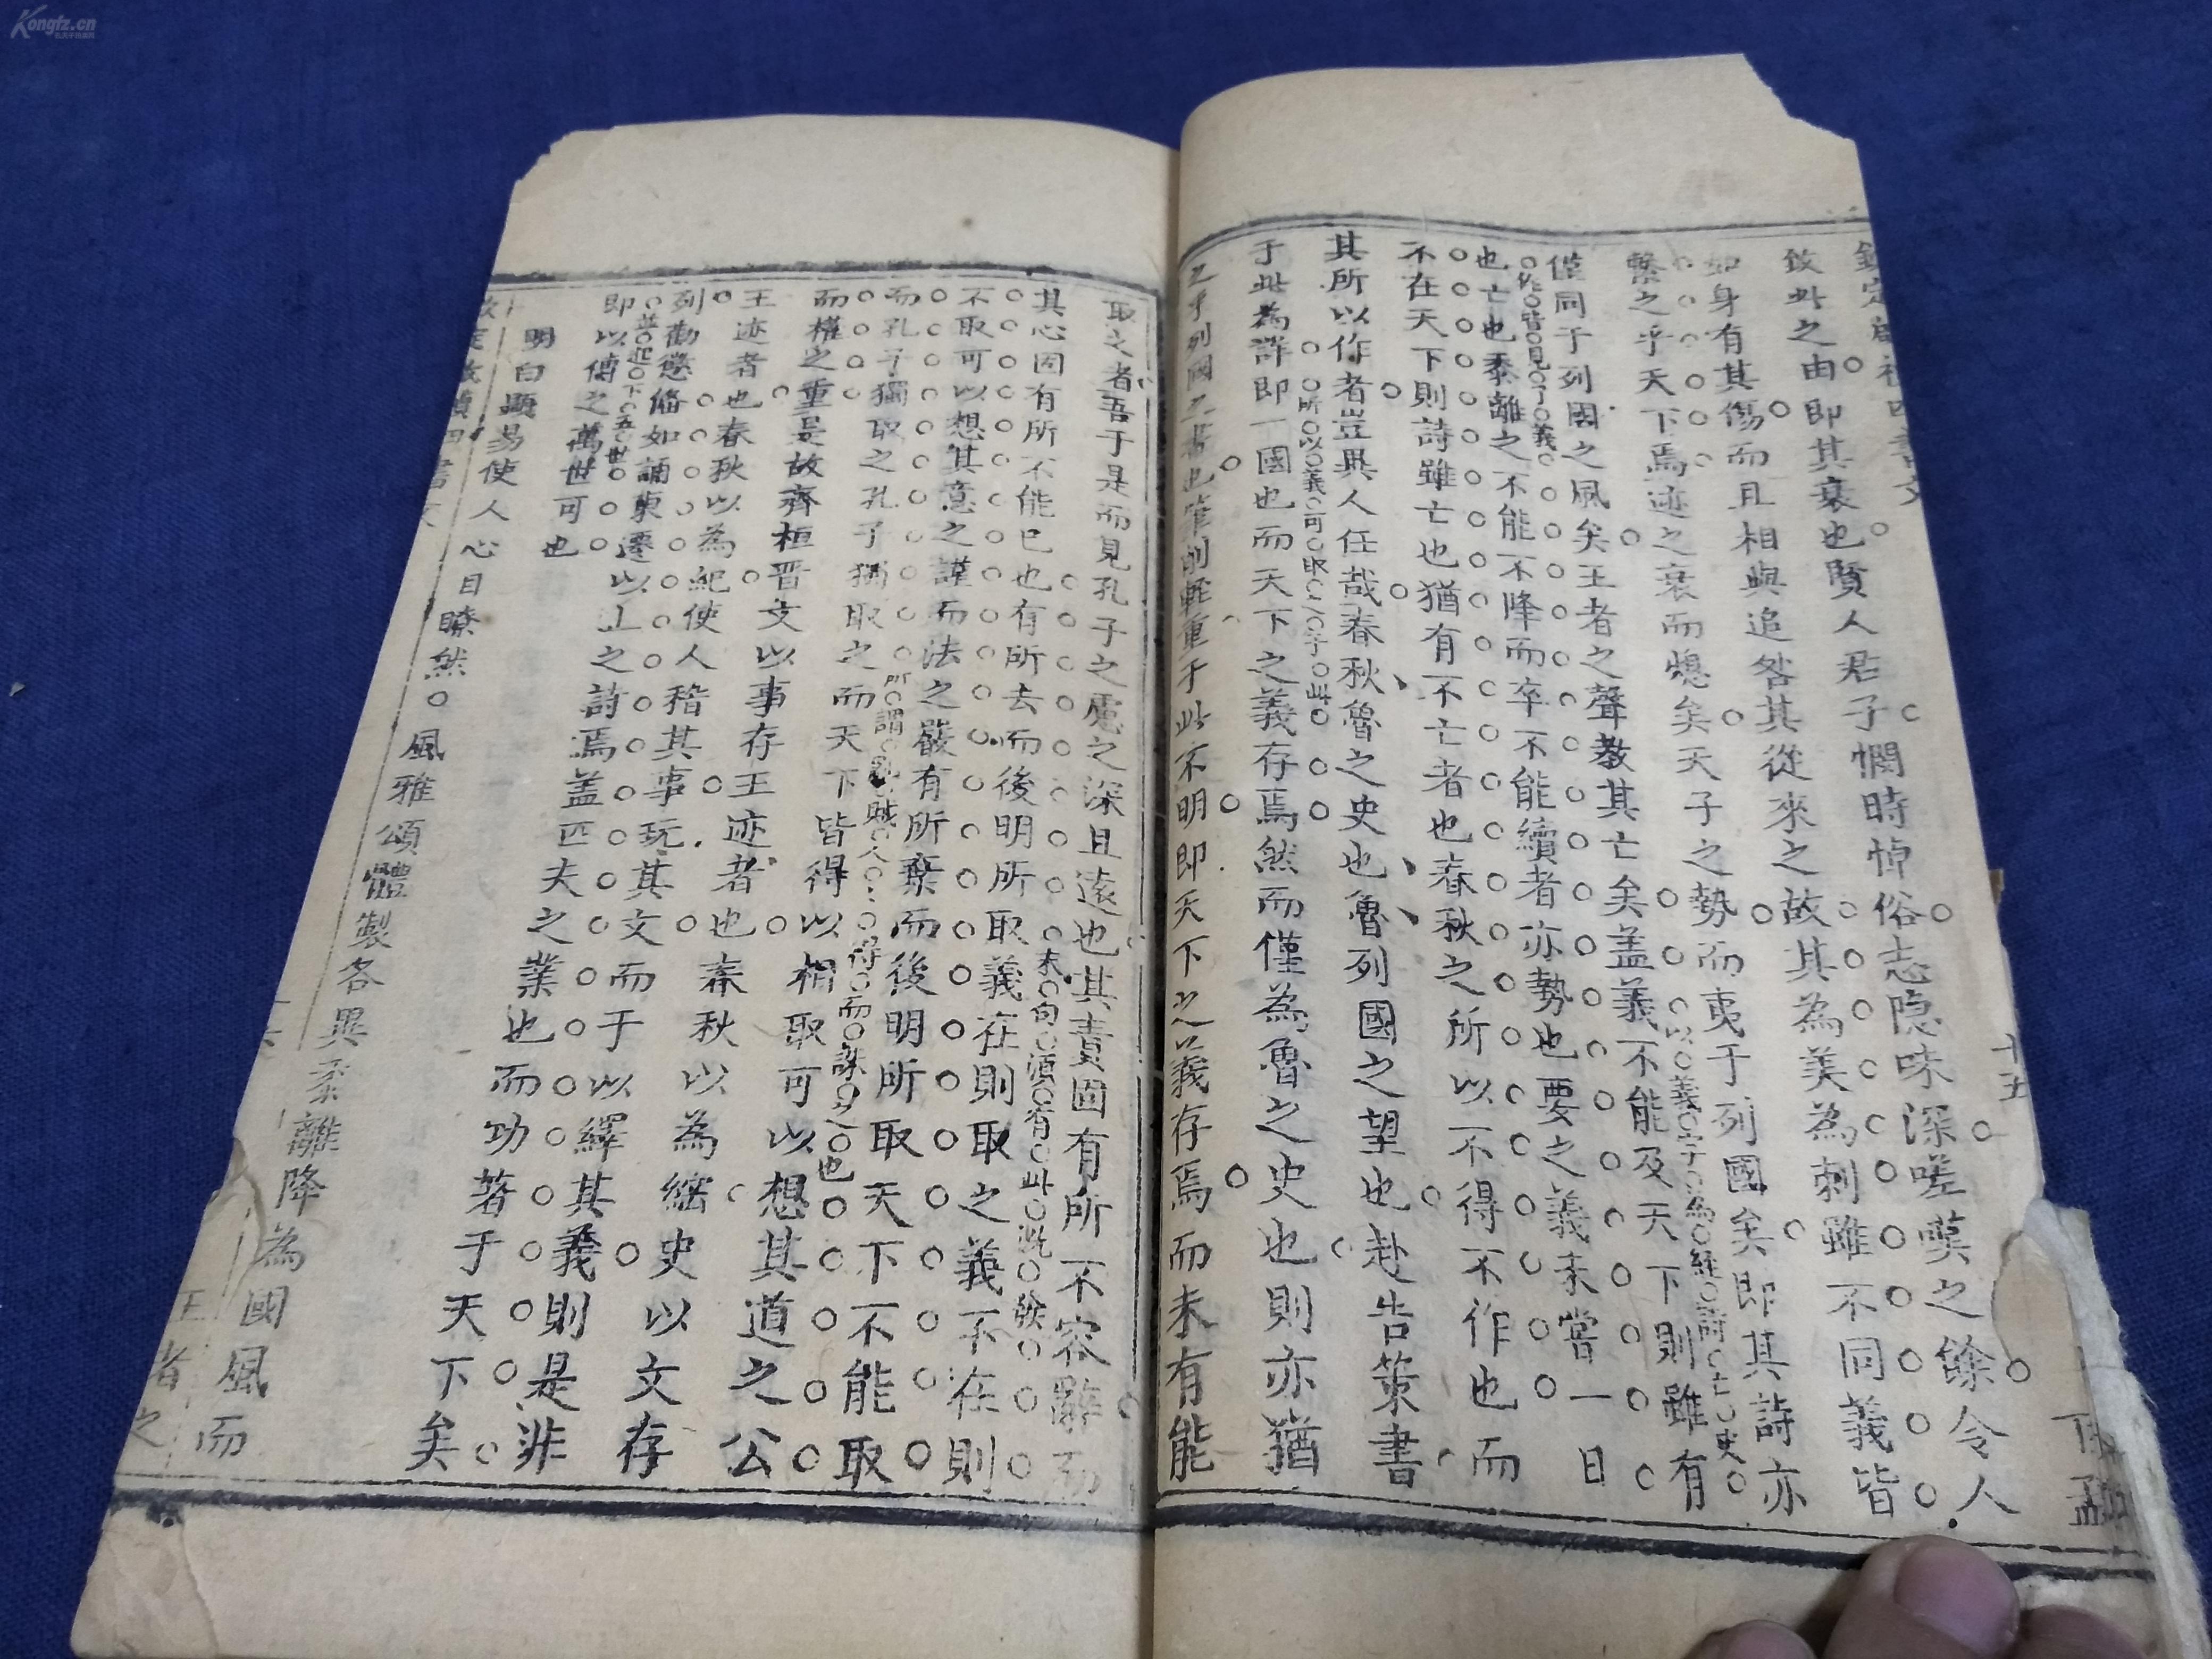 欽定啟禎四書文
十五
下孟
攷此之由即其衰也賢人君子憫時悼俗志隐味深嗟嘆之餘令人
如身有其傷而且相與追咎其從來之故其為美為刺雖不同義皆
繫之乎天下焉迹之衰而熄矣天子之勢而夷于列國矣即其詩亦
以義字為經詩亡史
僅同于列國之風矣王者之聲教其亡矣盖義不能及天下則雖有
作皆見了義
也亡也黍離之不能不降而卒不能續者亦勢也要之義未嘗一日
不在天下則詩雖亡也猶有不亡者也春秋之所以不得不作也而
其所以作者豈異人任哉春秋魯之史也魯列國之望也赴告策書
所以義可取之字此
于此為詳即一國也而天下之義存焉然而僅為魯之史也則亦猶
之乎列國之書也筆削輕重于此不明即天下之義存焉而未有能
取之者吾于是而見孔子之慮之深且遠也其責固有所不容辭而
末句須有此
其心固有所不能已也有所去而後明所取義在則取之義不在則
不取可以想其意之謹而法之嚴有所棄而後明所取天下不能取
而孔子獨取之孔子獨取之而天下皆得以相取可以想其道之公
所謂賊人得而誅之也
而權之重是故齊桓晋文以事存王迹者也春秋以為綰史以文存
王迹者也春秋以為紀使人稽其事玩其文而于以繹其義則是非
列勸懲脩如誦東遷以止之詩焉盖匹夫之業也而功著于天下矣
並起下五世
即以傳之萬世可也
明白顯易使人心目瞭然○風雅頌體製各異黍離降為國風而
王者之